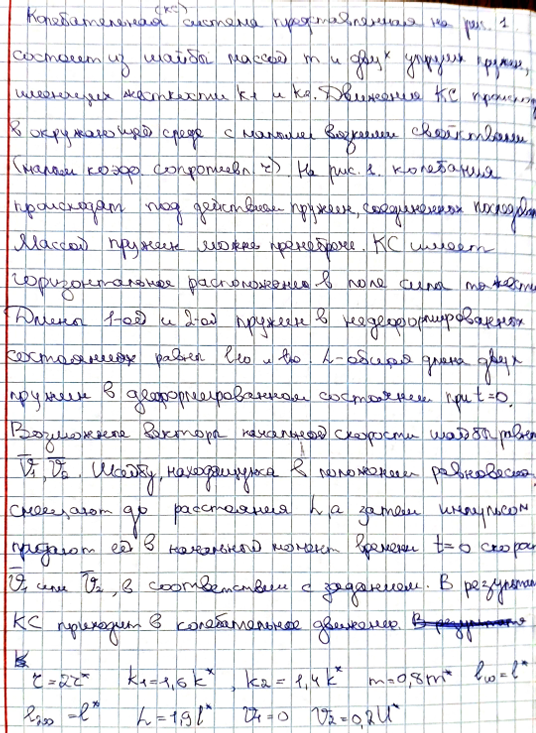 Колебательная (КС) система представленная на рис. 1.
состоит из шайбы массой m и двух упругих пружин,
имеющих жесткости k1 и k2. Движение КС происход
в окружающей среде с малыми вязкими свойствами
(малым коэф. сопротивл. r). На рис. 1. колебания
происходят под действием пружин, соединенных последов
Массой пружин можно пренебречь. КС имеет
горизонтальное расположение в поле силы тяжести
Длины 1-ой и 2-ой пружин в недеформированных
состояниях равны l10 и l20. L-общая длина двух
пружин в деформированном состоянии при t=0.
Возможные векторы начальной скорости шайбы равны
V̄1, V̄2. Шайбу, находящуюся в положении равновесия,
смещают до расстояния L, а затем импульсом
придают ей в начальный момент времени t=0 скорос
V̄1 или V̄2, в соответствии с заданием. В результат
КС приходит в колебательное движение.
r=2r* k1=1,6k*, k2=1,4k* m=0,8m* l10=l*
l200=l* L=1,9l* V1=0 V2=0,2U*